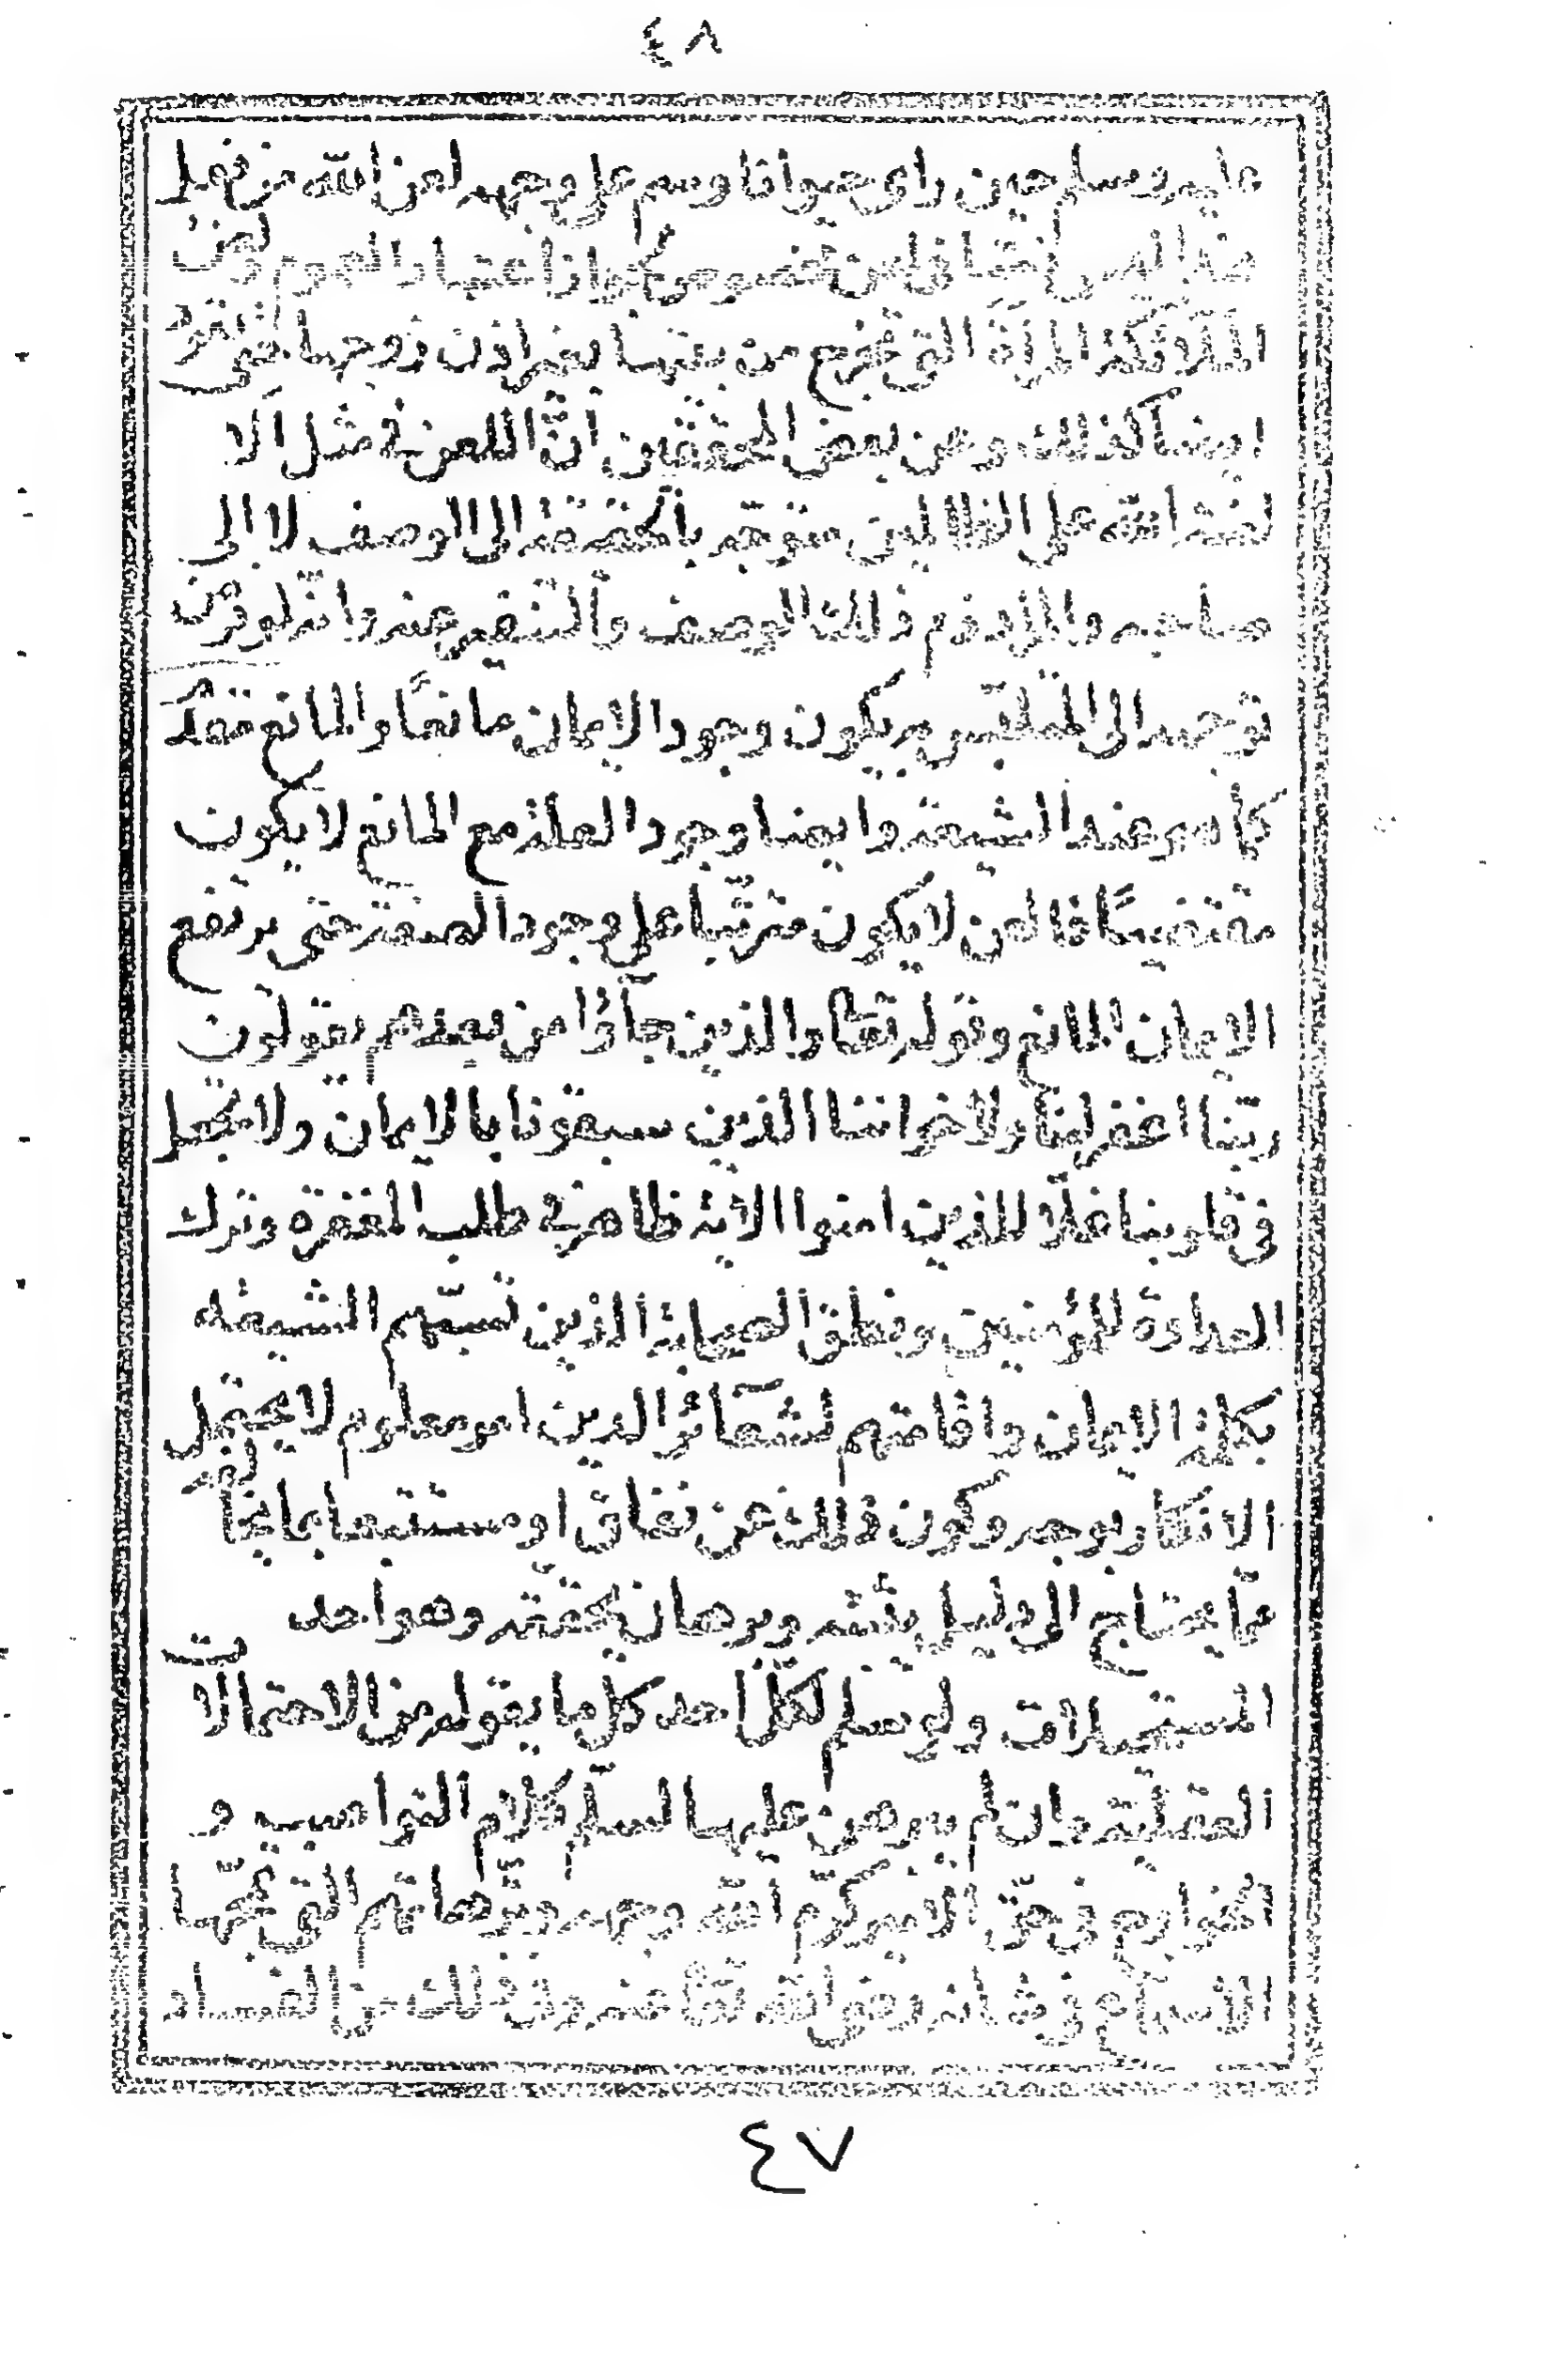 ٤٨
عليه وسلم حين راى حيوانا وسم على وجهه لعن الله من فعل
هذا لعن خصوص اعتبار العموم لعن
الملائكة المراة التى تخرج من بيتها بغير اذن زوجها
ايضا كذلك وعن بعض المحققين انّ اللعن فى مثل الا
لعنة الله على الظالمين متوجه بالحقيقة الى الوصف لا الى
صاحبه والمراد ذم ذلك الوصف والتنفير عنه وانه لو فرض
توجهه الى المتلبس به يكون وجود الايمان مانعًا والمانع مقدّم
كما هو عند الشيعة وايضا وجود العلة مع المانع لا يكون
مقتضيًا فاللعن لا يكون مترتّبا على وجود الصفة حتى يرتفع
الايمان المانع وقوله تعالى والذين جآؤا من بعدهم يقولون
ربّنا اغفر لنا ولاخواننا الذين سبقونا بالايمان ولا تجعل
فى قلوبنا غلّا للذين امنوا الاية ظاهر فى طلب المغفرة وترك
العداوة للمؤمنين ونطق الصحابة الذين تسبّهم الشيعه
بكلمة الايمان واقامتهم لشعآئر الدين امر معلوم لا يحتمل
الانكار بوجه وكون ذلك عن نفاق او مستتبعا بما يخالفه
ممّا يحتاج الى دليل يثبته وبرهان يحققه وهو احد
المستحيلات ولو سلم لكلّ احد كل ما يقوله من الاحتمالات
العقلية وان لم يبرهن عليها لسلم كلام النواصب و
الخوارج فى حقّ الامير كرّم الله وجهه